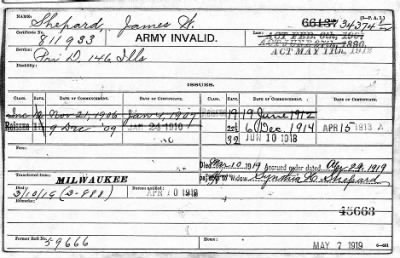 Name: Shepard, James W.
66137 34374
(3—P.A.I.)
Certificate No.: 811933
ARMY INVALID.
ACT FEB. 6th, 1907
ACT JUNE 27th, 1890
ACT MAY 11th, 1912
Service: Co. D. 146 Ills
Disability:
ISSUES.
CLASS. RATE. DATE OF COMMENCEMENT. DATE OF CERTIFICATE. CLASS. RATE. DATE OF COMMENCEMENT. DATE OF CERTIFICATE.
Nov 21, 1906 Jan 4, 1907 19 19 June 1912
Reissue 9 Dec 09 JAN 24 1910 6 Dec. 1914 APR 15 1913
32 JUN 10 1918
Died Mar 10 1919 Accrued under dated Apr 29, 1919
to Widow Cynthia A. Shepard
Transferred from MILWAUKEE
Died: 3/10/19 (3-888) Bureau notified APR 10 1919
45663
Former Roll No. 59666
Home: MAY 7 1919